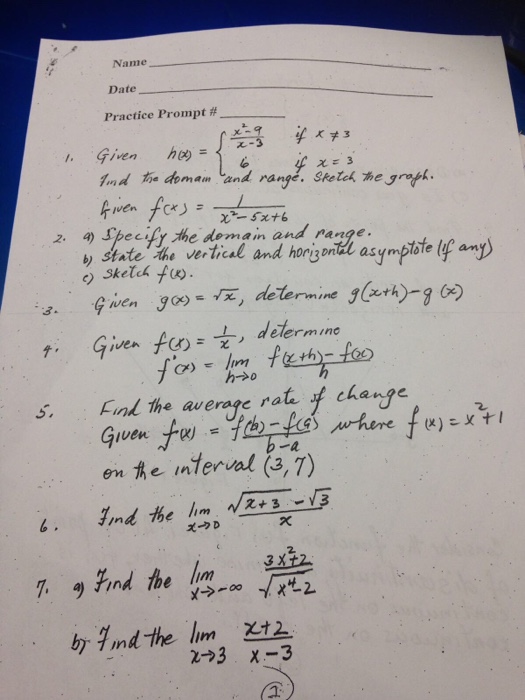 Name
Date
Practice Prompt #
1. Given h(x) = { (x²-9)/(x-3) if x ≠ 3
6 if x = 3
Find the domain and range. Sketch the graph.
Given f(x) = 1/(x²-5x+6)
2. a) Specify the domain and range.
b) State the vertical and horizontal asymptote (if any)
c) Sketch f(x).
3. Given g(x) = √x, determine g(x+h)-g(x)
4. Given f(x) = 1/x, determine
f'(x) = lim h→0 (f(x+h)-f(x))/h
5. Find the average rate of change
Given f(x) = (f(b)-f(a))/(b-a) where f(x) = x²+1
on the interval (3,7)
6. Find the lim x→0 (√(x+3) - √3)/x
7. a) Find the lim x→-∞ (3x²+2)/√(x⁴-2)
b) Find the lim x→3 (x+2)/(x-3)
1